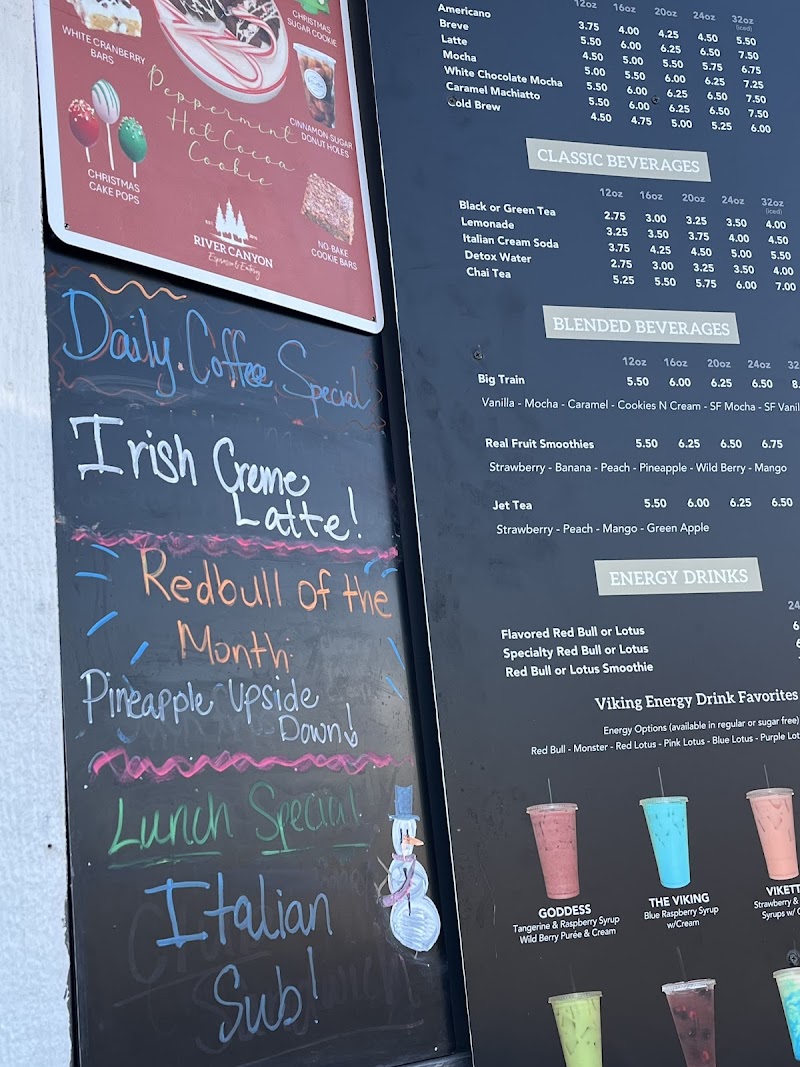 WHITE CRANBERRY
BARS
CHRISTMAS
SUGAR COOKIE
Peppermint
Hot Cocoa
Cookie
CINNAMON SUGAR
DONUT HOLES
CHRISTMAS
CAKE POPS
NO-BAKE
COOKIE BARS
RIVER CANYON
Espresso & Eatery
Daily Coffee Special
Irish Creme
Latte!
Redbull of the
Month
Pineapple Upside
Down!
Lunch Special
Italian
Sub!
12oz 16oz 20oz 24oz 32oz
(iced)
Americano 3.75 4.00 4.25 4.50 5.50
Breve 5.50 6.00 6.25 6.50 7.50
Latte 4.50 5.00 5.50 5.75 6.75
Mocha 5.00 5.50 6.00 6.25 7.25
White Chocolate Mocha 5.50 6.00 6.25 6.50 7.50
Caramel Machiatto 5.50 6.00 6.25 6.50 7.50
Cold Brew 4.50 4.75 5.00 5.25 6.00
CLASSIC BEVERAGES
12oz 16oz 20oz 24oz 32oz
(iced)
Black or Green Tea 2.75 3.00 3.25 3.50 4.00
Lemonade 3.25 3.50 3.75 4.00 4.50
Italian Cream Soda 3.75 4.25 4.50 5.00 5.50
Detox Water 2.75 3.00 3.25 3.50 4.00
Chai Tea 5.25 5.50 5.75 6.00 7.00
BLENDED BEVERAGES
12oz 16oz 20oz 24oz 32
Big Train 5.50 6.00 6.25 6.50 8.
Vanilla - Mocha - Caramel - Cookies N Cream - SF Mocha - SF Vanil
Real Fruit Smoothies 5.50 6.25 6.50 6.75
Strawberry - Banana - Peach - Pineapple - Wild Berry - Mango
Jet Tea 5.50 6.00 6.25 6.50
Strawberry - Peach - Mango - Green Apple
ENERGY DRINKS
24
Flavored Red Bull or Lotus 6
Specialty Red Bull or Lotus
Red Bull or Lotus Smoothie
Viking Energy Drink Favorites
Energy Options (available in regular or sugar free)
Red Bull - Monster - Red Lotus - Pink Lotus - Blue Lotus - Purple Lot
GODDESS
Tangerine & Raspberry Syrup
Wild Berry Purée & Cream
THE VIKING
Blue Raspberry Syrup
w/Cream
VIKETT
Strawberry &
Syrups w/ C